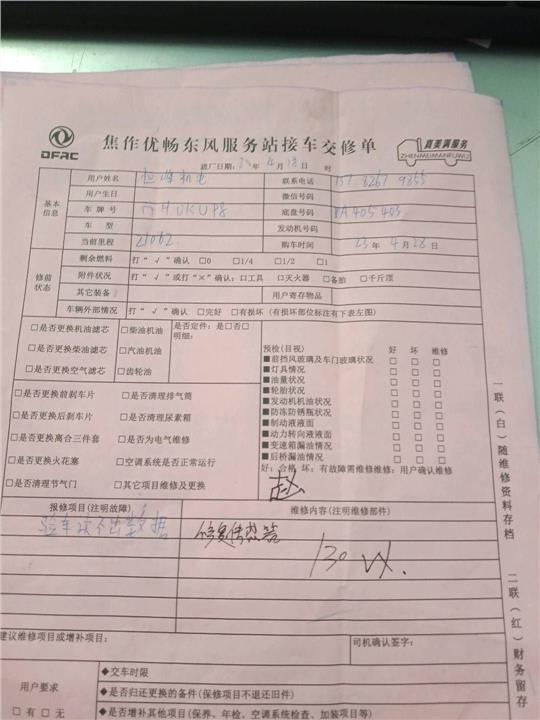 DFAC
焦作优畅东风服务站接车交修单
真美满服务
ZHENMEIMANFUWU
进厂日期: 年 4 月 18 日 时
基本信息
用户姓名
联系电话 157 8267 9855
用户生日
微信号码
车牌号
底盘号码 RA405403
车型
发动机号码
当前里程 21062
购车时间 23 年 4 月 28 日
修前状态
剩余燃料 打“√”确认 □0 □1/4 □1/2 □1
附件状况 打“√”或打“×”确认:□工具 □灭火器 □备胎 □千斤顶
其它装备
用户寄存物品
车辆外部情况 打“√”确认 □完好 □有损坏(有损坏部位标注有下表左图)
□是否更换机油滤芯 □柴油机油 是否定件:是□否□
明细:
□是否更换柴油滤芯 □汽油机油
□是否更换空气滤芯 □齿轮油
预检(目视) 好 坏 维修
■前挡风玻璃及车门玻璃状况 □ □ □
■灯具情况 □ □ □
■油量状况 □ □ □
■轮胎状况 □ □ □
■发动机机油状况 □ □ □
■防冻防锈瓶状况 □ □ □
■制动液液面 □ □ □
■动力转向液液面 □ □ □
■变速箱漏油情况 □ □ □
■后桥漏油情况 □ □ □
好:合格 坏:有故障需维修维修:用户确认维修
□是否更换前刹车片 □是否清理排气筒
□是否更换后刹车片 □是否清理尿素箱
□是否更换离合三件套 □是否为电气维修
□是否更换火花塞 □空调系统是否正常运行
□是否清理节气门 □其它项目维修及更换
赵
报修项目(注明故障)
维修内容(注明维修部件)
验车读不出数据
130
建议维修项目或增补项目:
司机确认签字:
用户要求
□有 □无
◆交车时限
◆是否归还更换的备件(保修项目不退还旧件)
◆是否增补其他项目(保养、年检、空调系统检查、加装项目等)
一联(白)随维修资料存档
二联(红)财务留存